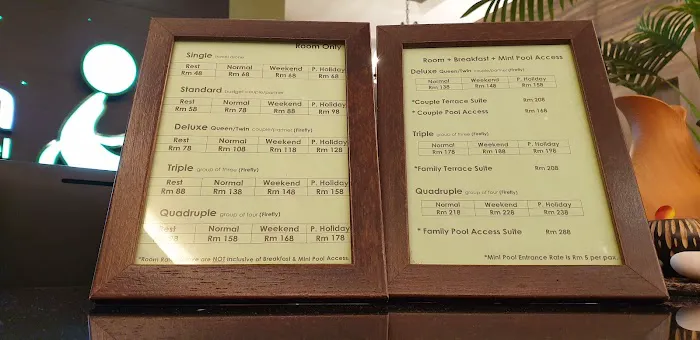 Room Only
Single
Rest Normal Weekend P. Holiday
Rm 48 Rm 68 Rm 68 Rm 68
Standard budget couple/partner
Rest Normal Weekend P. Holiday
Rm 58 Rm 78 Rm 88 Rm 98
Deluxe Queen/Twin couple/partner (Firefly)
Rest Normal Weekend P. Holiday
Rm 78 Rm 108 Rm 118 Rm 128
Triple group of three (Firefly)
Rest Normal Weekend P. Holiday
Rm 88 Rm 138 Rm 148 Rm 158
Quadruple group of four (Firefly)
Rest Normal Weekend P. Holiday
Rm 158 Rm 168 Rm 178
*Room are NOT inclusive of Breakfast & Mini Pool Access
Room + Breakfast + Mini Pool Access
Deluxe Queen/Twin couple/partner (Firefly)
Normal Weekend P. Holiday
Rm 138 Rm 148 Rm 158
*Couple Terrace Suite Rm 208
* Couple Pool Access Rm 168
Triple group of three (Firefly)
Normal Weekend P. Holiday
Rm 178 Rm 188 Rm 198
*Family Terrace Suite Rm 208
Quadruple group of four (Firefly)
Normal Weekend P. Holiday
Rm 218 Rm 228 Rm 238
* Family Pool Access Suite Rm 288
*Mini Pool Entrance Rate is Rm 5 per pax